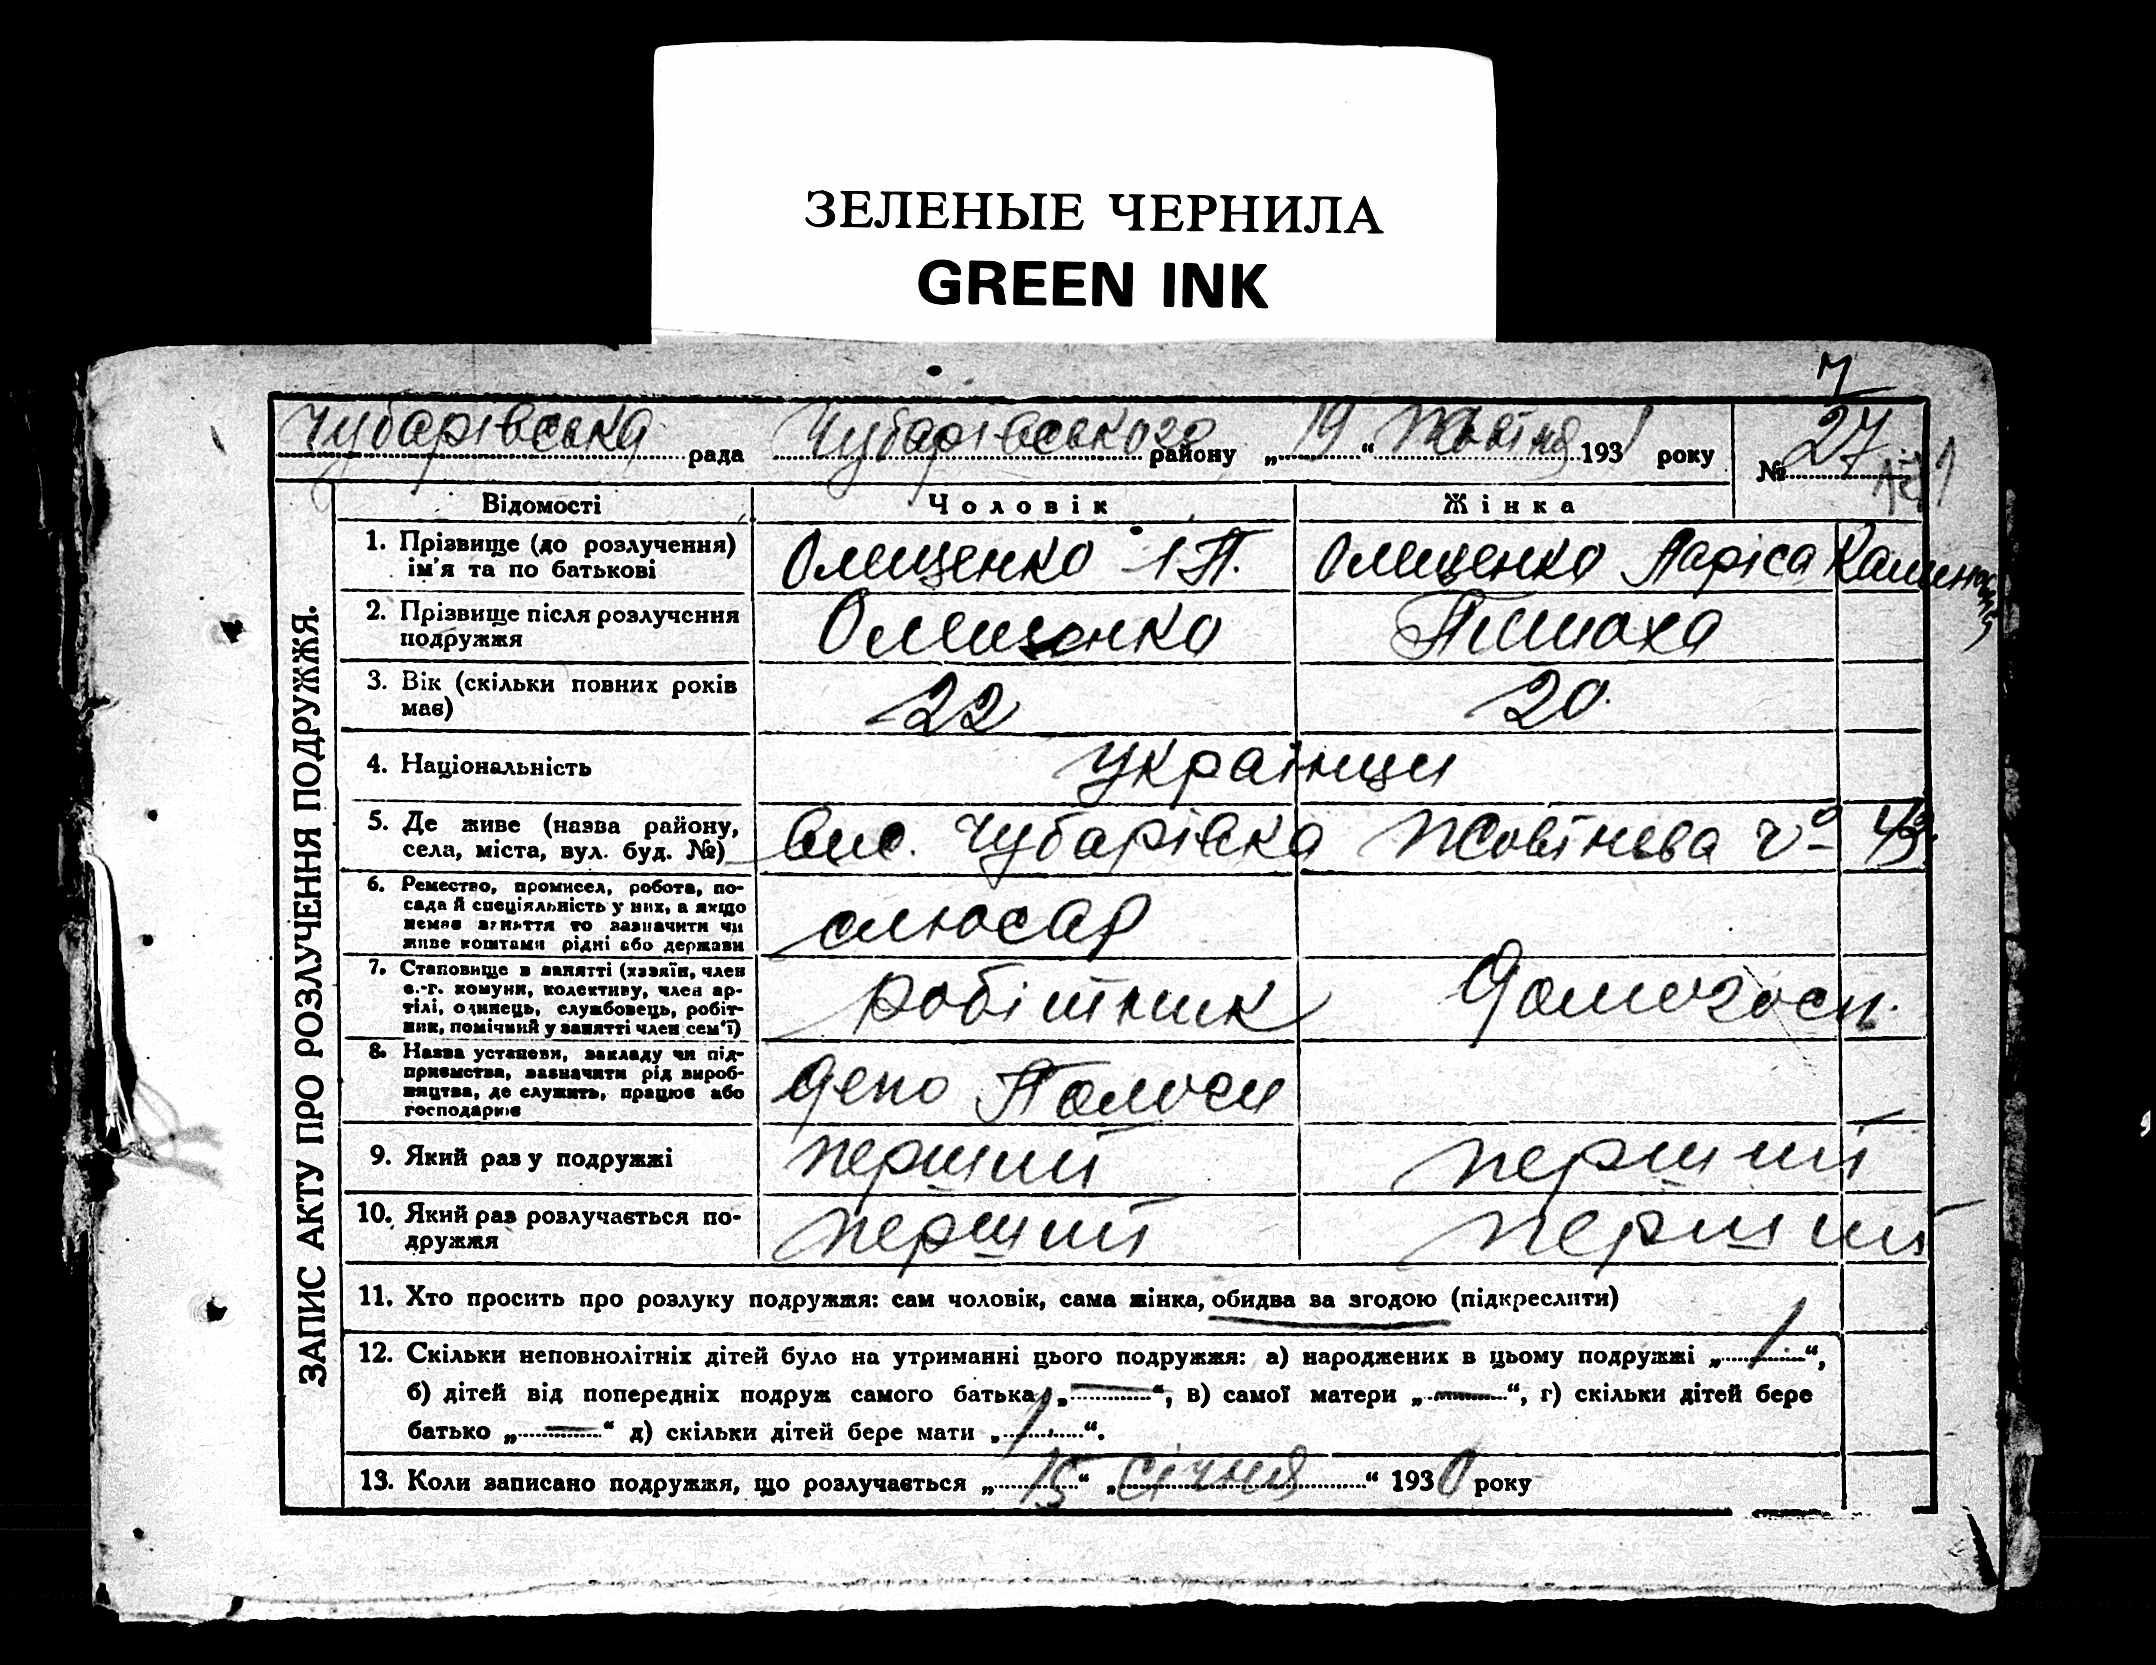 ЗЕЛЕНЫЕ ЧЕРНИЛА
GREEN INK
Чубарівська рада Чубарівського району „19“ Жовтня 1931 року № 27
ЗАПИС АКТУ ПРО РОЗЛУЧЕННЯ ПОДРУЖЖЯ.
Відомості Чоловік Жінка
1. Прізвище (до розлучення) Олещенко І. П. Олещенко Лариса
ім'я та по батькові
2. Прізвище після розлучення Олещенко
подружжя
3. Вік (скільки повних років 22 20.
має)
4. Національність Українци
5. Де живе (назва району, Чубарівка Жовтнева
села, міста, вул. буд. №)
6. Ремество, промисел, робота, по- слюсар
сада й спеціяльність у них, а якщо
немає заняття то зазначити чи
живе коштами рідні або держави
7. Становище в занятті (хазяїн, член робітник Домогосп.
с.-г. комуни, колективу, член ар-
тілі, одинець, службовець, робіт-
ник, помічний у занятті член сем'ї)
8. Назва установи, закладу чи під- Депо Пологи
приємства, зазначити рід вироб-
ництва, де служить, працює або
господарює
9. Який раз у подружжі перший перший
10. Який раз розлучається по- перший перший
дружжя
11. Хто просить про розлуку подружжя: сам чоловік, сама жінка, обидва за згодою (підкреслити)
12. Скільки неповнолітніх дітей було на утриманні цього подружжя: а) народжених в цьому подружжі „1“,
б) дітей від попередніх подруж самого батька „—“, в) самої матери „—“, г) скільки дітей бере
батько „—“ д) скільки дітей бере мати „1“.
13. Коли записано подружжя, що розлучається „15“ „січня“ 1930 року